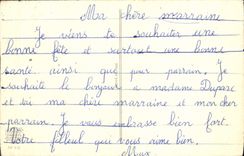 Ma chère marraine
Je viens te souhaiter une
bonne fête et surtout une bonne
santé, ainsi que pour parrain. Je
souhaite le bonjour a madame Duparc
et toi ma chère marraine et mon cher
parrain. Je vous embrasse bien fort.
Votre filleul qui vous aime bien.
Max